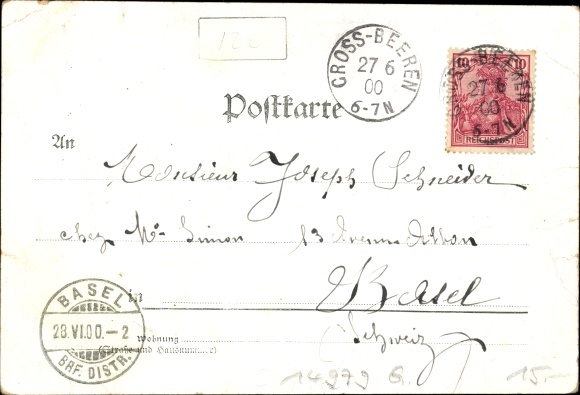 GROSS-BEEREN
27 6
00
6-7N
10 10
GROSS-BEEREN
27 6
00
6-7N
REICHSPOST
Postkarte
An
Monsieur Joseph Schneider
chez Mr Simon 13 Avenue
in Basel
Schweiz
BASEL
28.VI.00.-2
BRF. DISTR.
Wohnung
(Straße und Hausnummer)
14979 G. 15.-